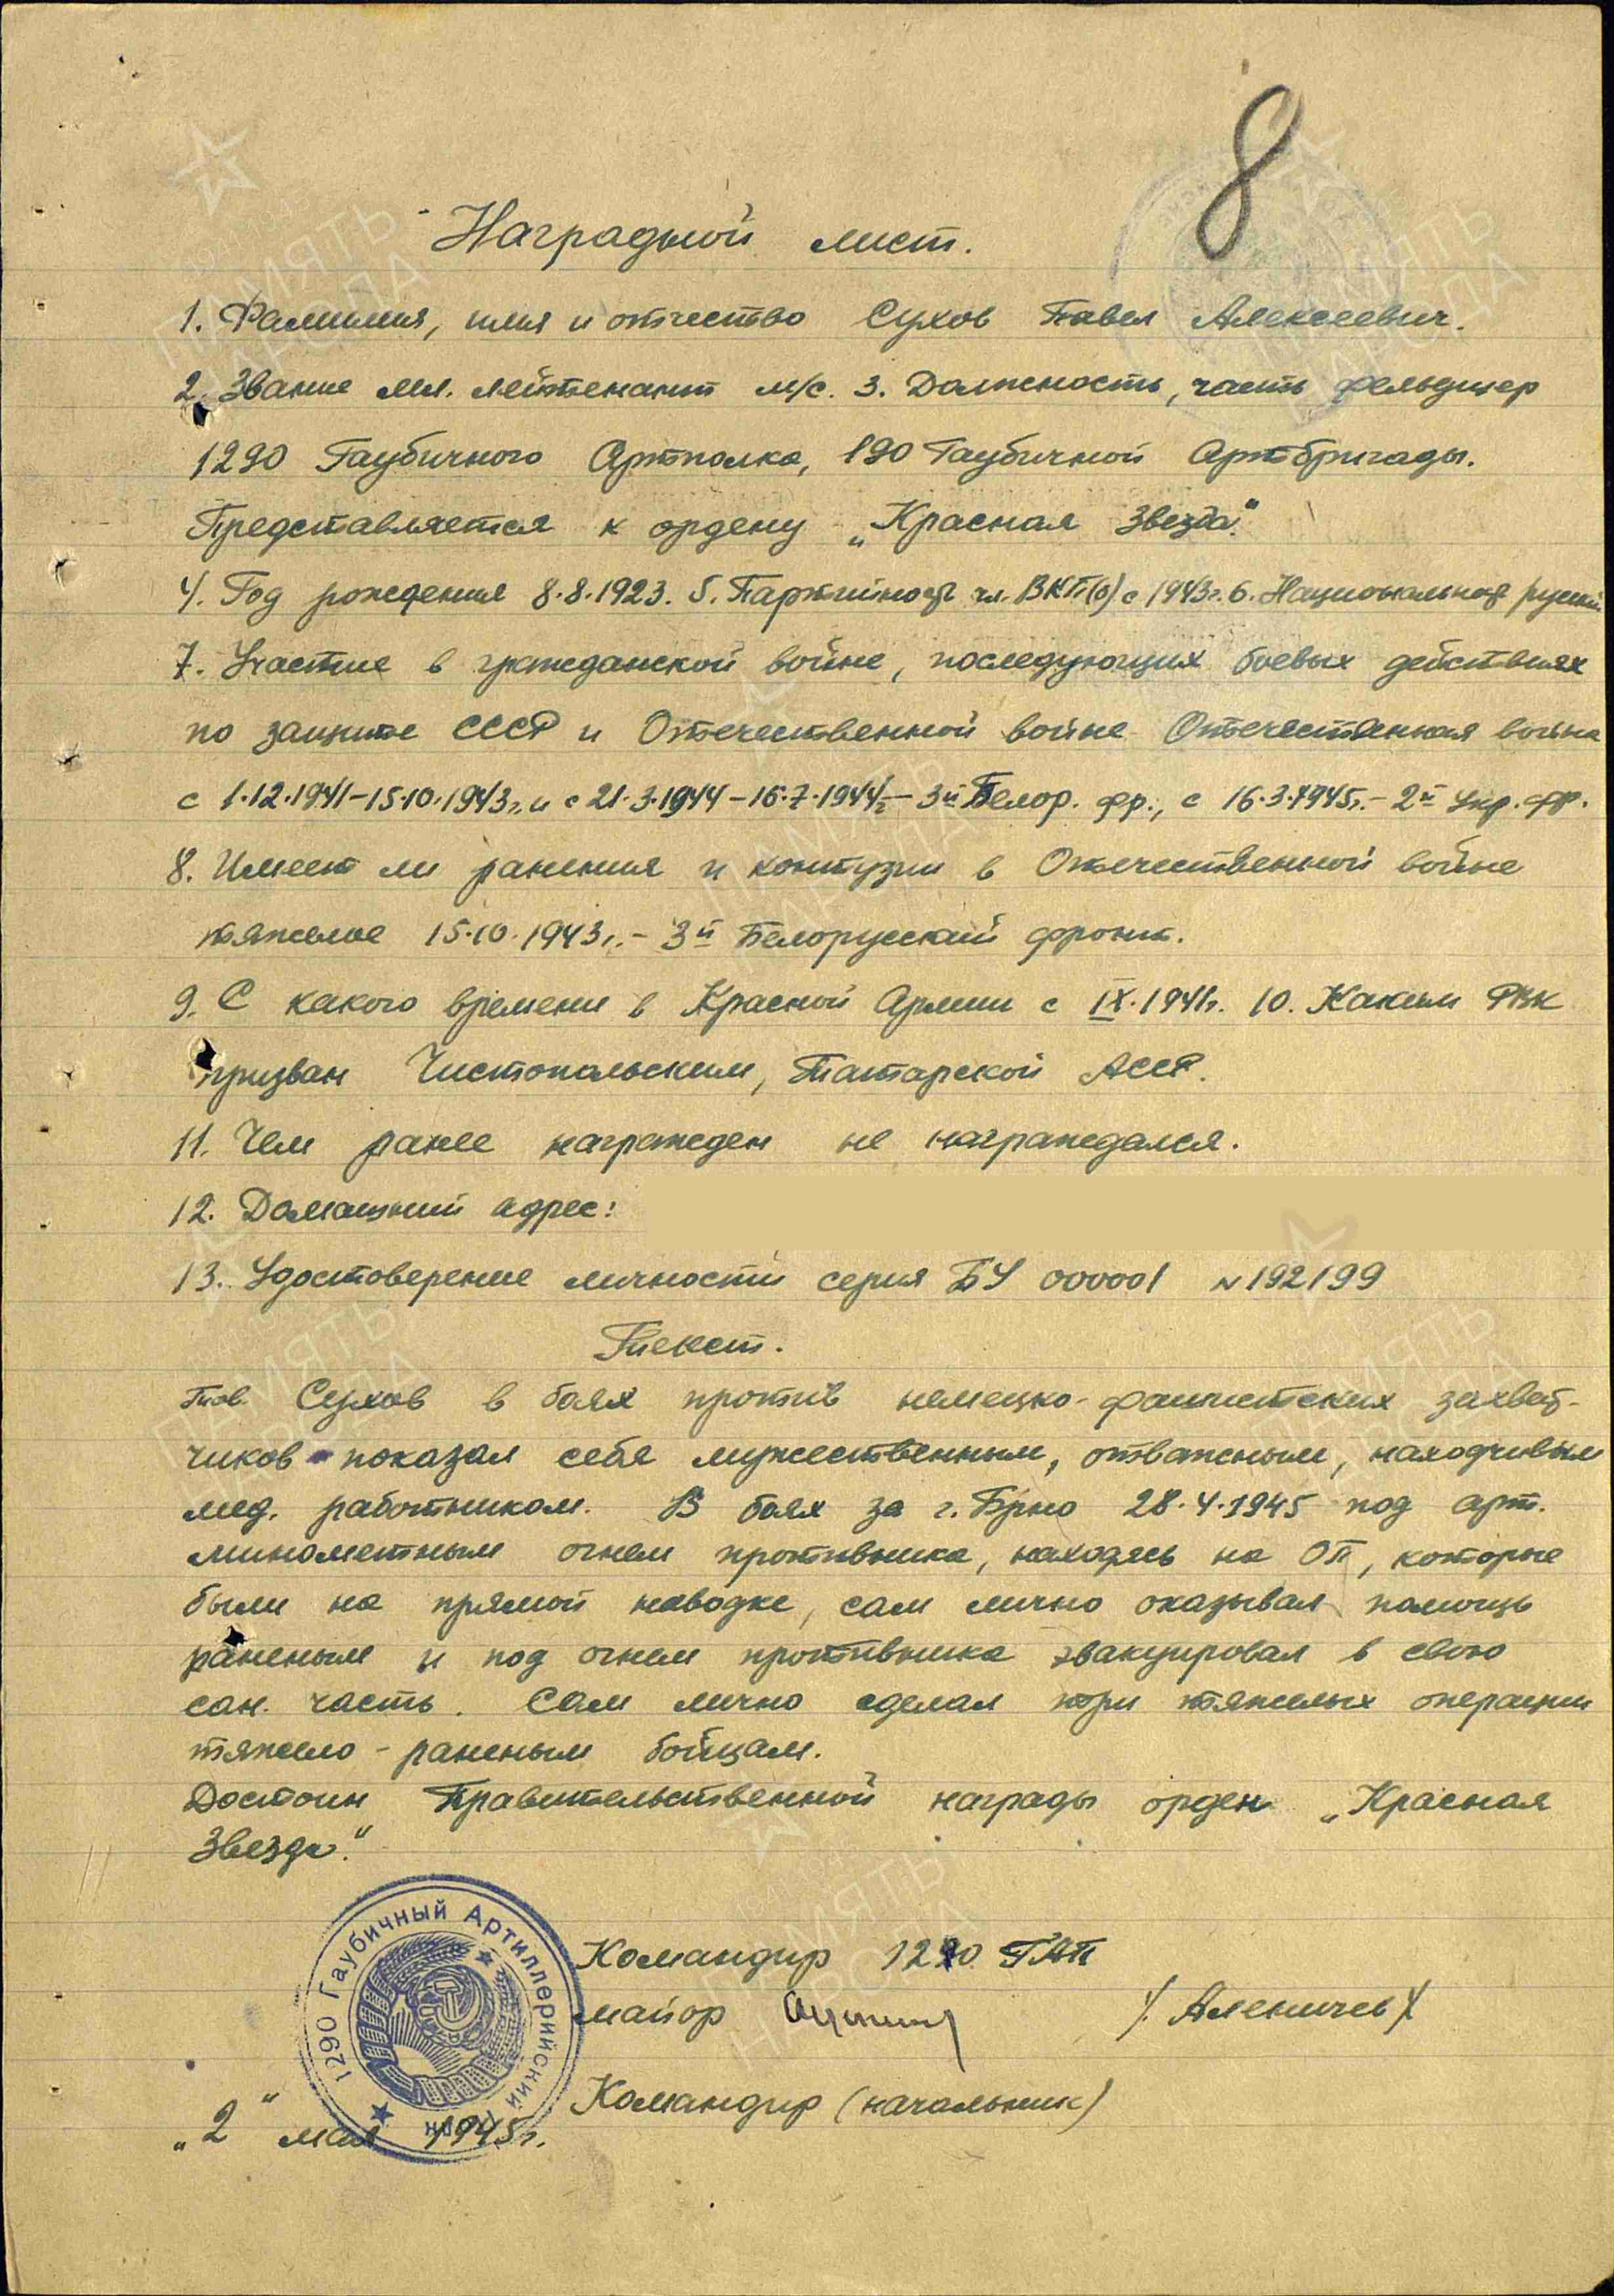 8
Наградной лист.
1. Фамилия, имя и отчество Сухов Павел Алексеевич.
2. Звание мл. лейтенант м/с. 3. Должность, часть фельдшер
1290 Гаубичного Артполка, 190 Гаубичной Артбригады.
Представляется к ордену „Красная Звезда“.
4. Год рождения 8.8.1923. 5. Партийность чл. ВКП(б) с 1943г. 6. Национальность русский
7. Участие в гражданской войне, последующих боевых действиях
по защите СССР и Отечественной войне Отечественная война
с 1.12.1941-15.10.1943г. и с 21.3.1944-16.7.1944г. - 3й Белор. фр., с 16.3.1945г. - 2й Укр. фр.
8. Имеет ли ранения и контузии в Отечественной войне
тяжелое 15.10.1943г. - 3й Белорусский фронт.
9. С какого времени в Красной Армии с IX.1941г. 10. Каким РВК
призван Чистопольским, Татарской АССР.
11. Чем ранее награжден не награждался.
12. Домашний адрес:
13. Удостоверение личности серия БУ 000001 N192199
Текст.
Тов. Сухов в боях против немецко-фашистских захват-
чиков показал себя мужественным, отважным, находчивым
мед. работником. В боях за г. Брно 28.4.1945 под арт.
минометным огнем противника, находясь на ОП, которые
были на прямой наводке, сам лично оказывал помощь
раненым и под огнем противника эвакуировал в свою
сан. часть. Сам лично сделал три тяжелых операции
тяжело-раненым бойцам.
Достоин Правительственной награды орден „Красная
Звезда“.
1290 Гаубичный Артиллерийский полк
Командир 1290 ГАП
майор /. Аленичев /
Командир (начальник)
„2“ мая 1945г.
ПАМЯТЬ НАРОДА